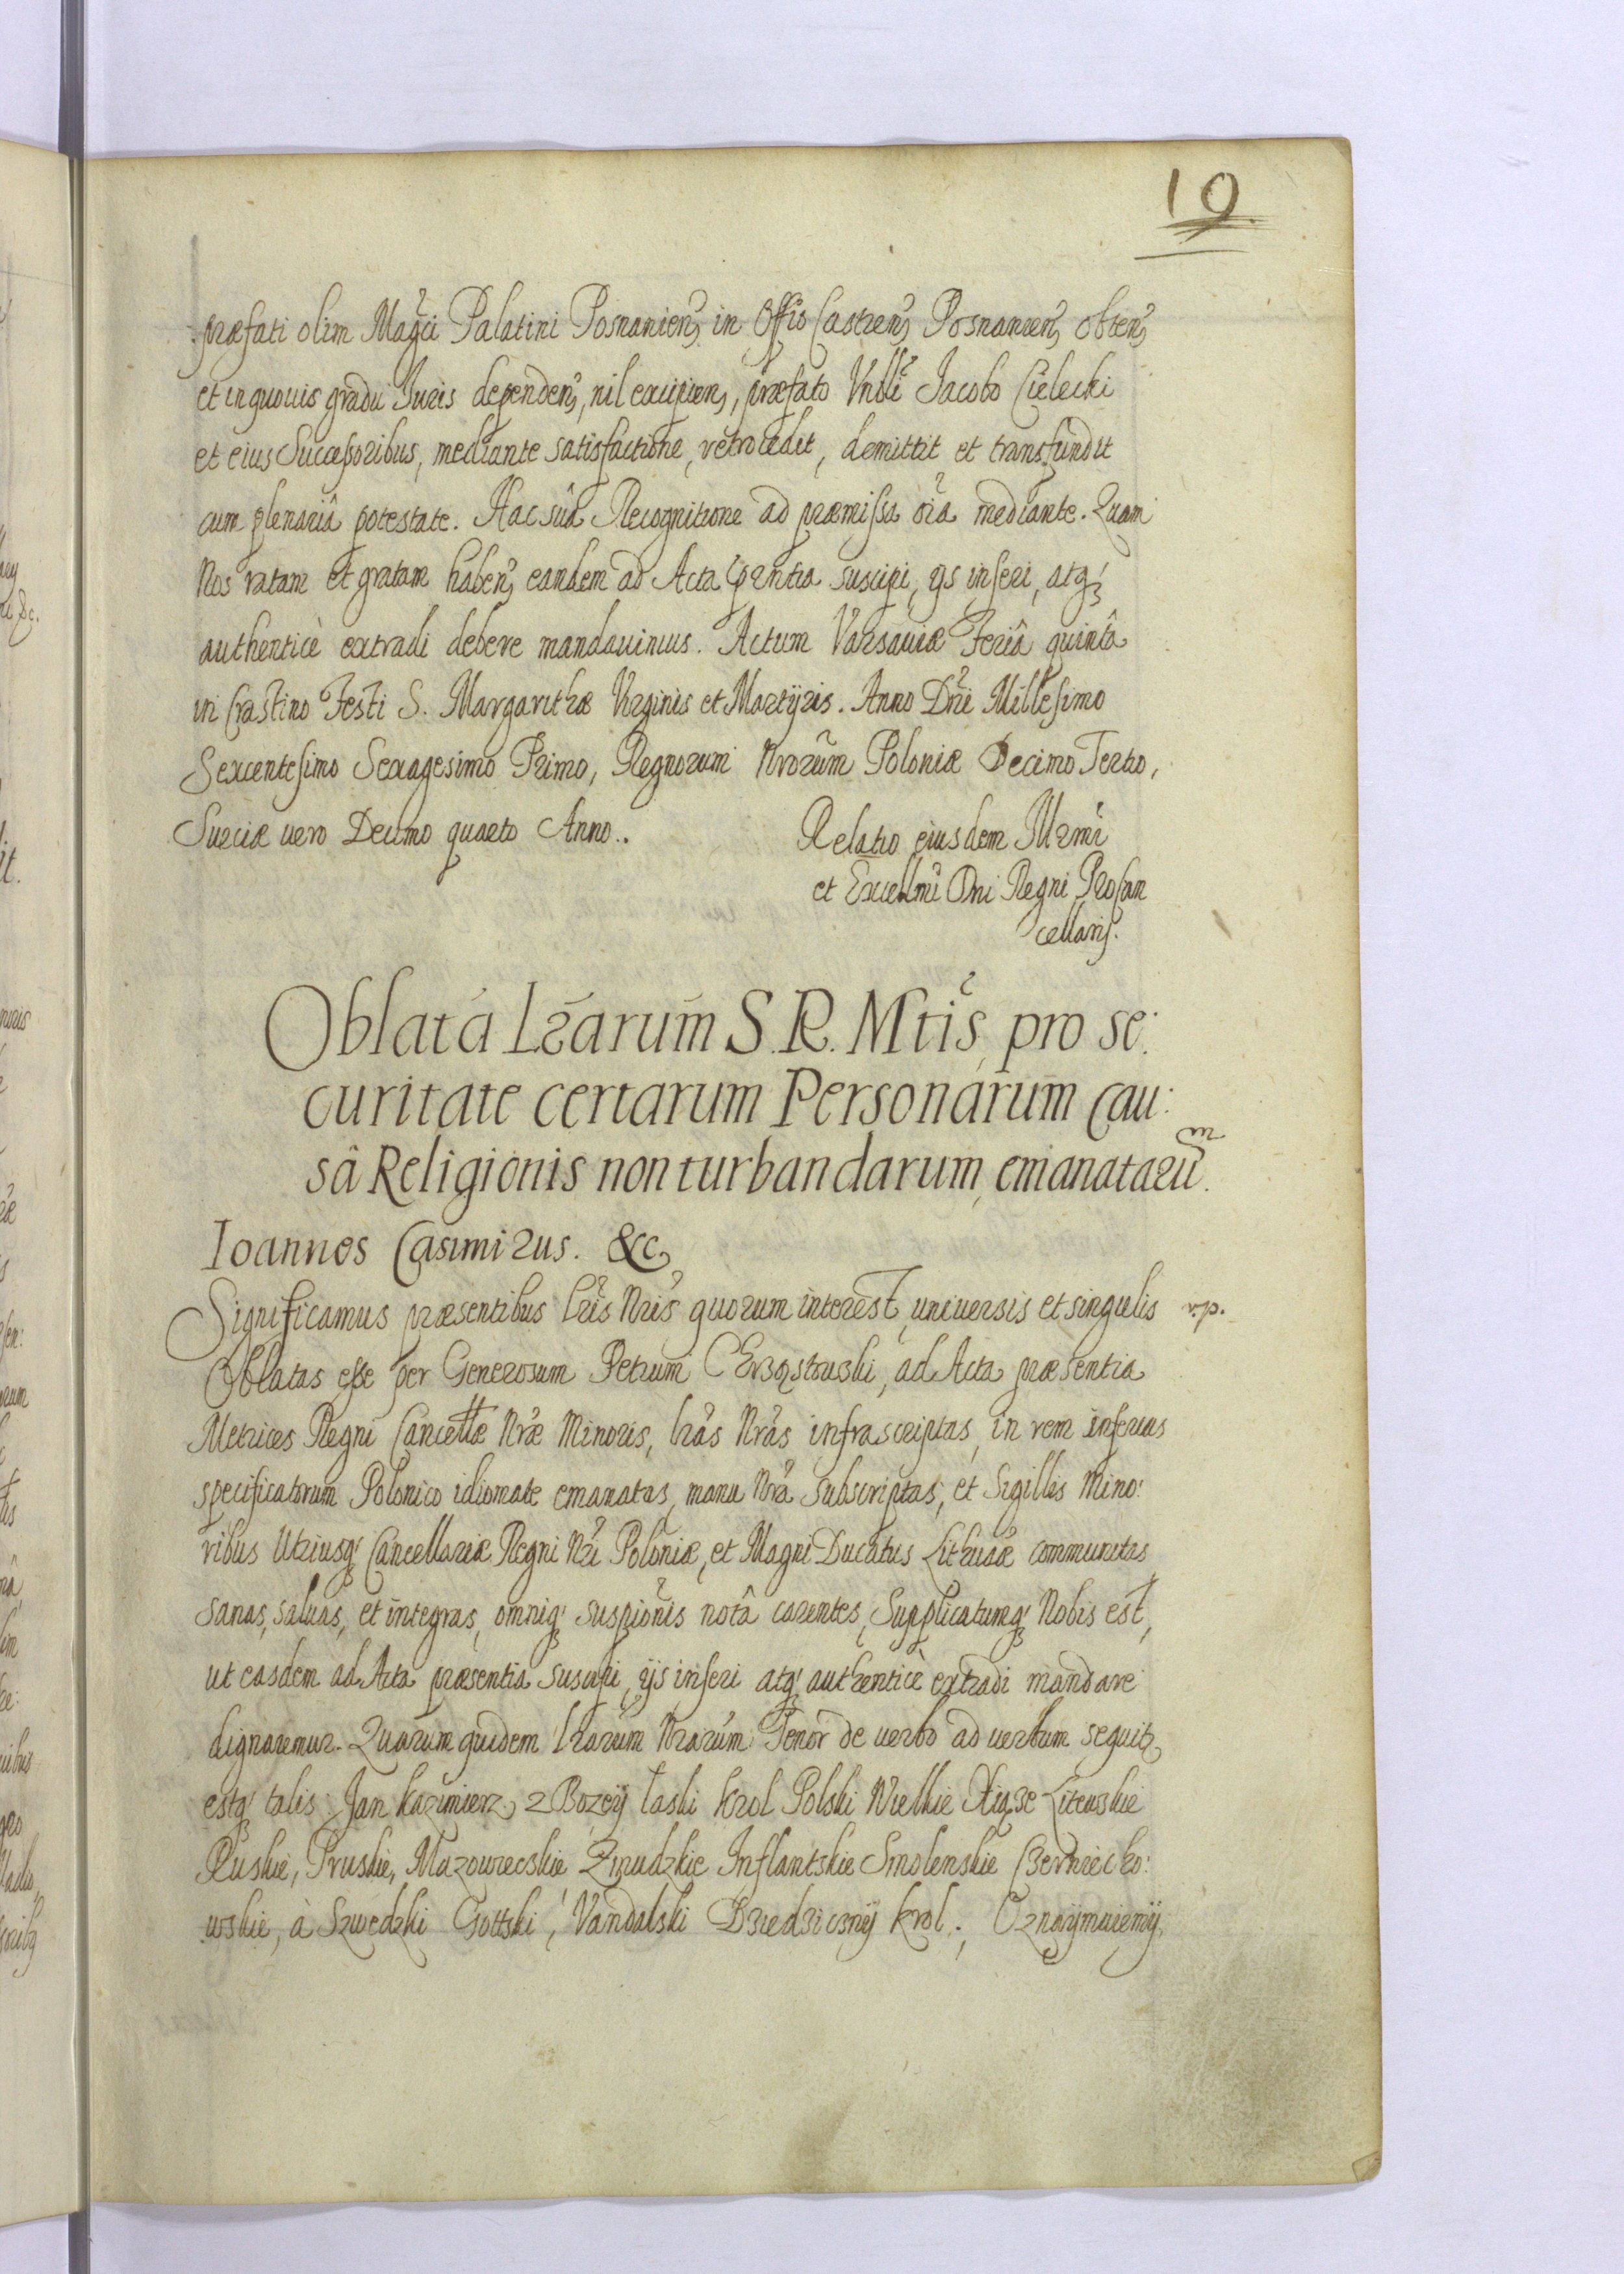 19
præfati olim Magci Palatini Posnanien, in Offio Castren, Posnanien, obten,
et in quouis gradu Iuris dependen, nil excipien, præfato Vrbli Jacobo Cielecki
et eius Successoribus, mediante satisfactione, retrocedit, demittit et transfundit
cum plenariâ potestate. Hac suâ Recognitione ad præmissa oia mediante. Quam
Nos ratam et gratam haben, eandem ad Acta prntia suscipi, ijs inseri, atq,
authenticè extradi debere mandauimus. Actum Varsauiæ Feriâ quintâ
in Crastino Festi S. Margarithæ Virginis et Martyris. Anno Dni Millesimo
Sexcentesimo Sexagesimo Primo, Regnorum Nrorum Poloniæ Decimo Tertio,
Sueciæ vero Decimo quarto Anno.
Relatio eiusdem Illrmi
et Excellmi Dni Regni ProCan
cellarij.
Oblata Lrarum S. R. Mtis, pro se:
curitate certarum Personarum Cau:
sâ Religionis non turbandarum, emanataru
m
Ioannes Casimirus. &c
Significamus præsentibus Lris Nris quorum interest, uniuersis et singulis
Oblatas esse per Generosum Petrum
ad Acta præsentia
Metrices Regni Cancellæ Nræ Minoris, Lras Nras infrascriptas, in rem inferius
specificatorum Polonico idiomate emanatas, manu Nra subscriptas, et Sigillis Mino:
ribus Utriusq, Cancellariæ Regni Nri Poloniæ, et Magni Ducatus Lithuaæ communitas
sanas, saluas, et integras, omniq, suspionis notâ carentes, Supplicatumq, Nobis est,
ut easdem ad Acta præsentia suscipi, ijs inseri atq, authenticè extradi mandare
dignaremur. Quarum quidem Lrarum Nrarum Tenor de uerbo ad uerbum sequitr,
estq, talis: Jan Kazimierz z Bozey łaski Krol Polski Wielkie Xiąze Litewskie
Ruskie, Pruskie, Mazowieckie Zmudzkie Inflantskie Smolenskie Czerniecho:
wskie, à Szwedzki Gottski, Vandalski Dziedziczny Krol. Oznaymuiemy,